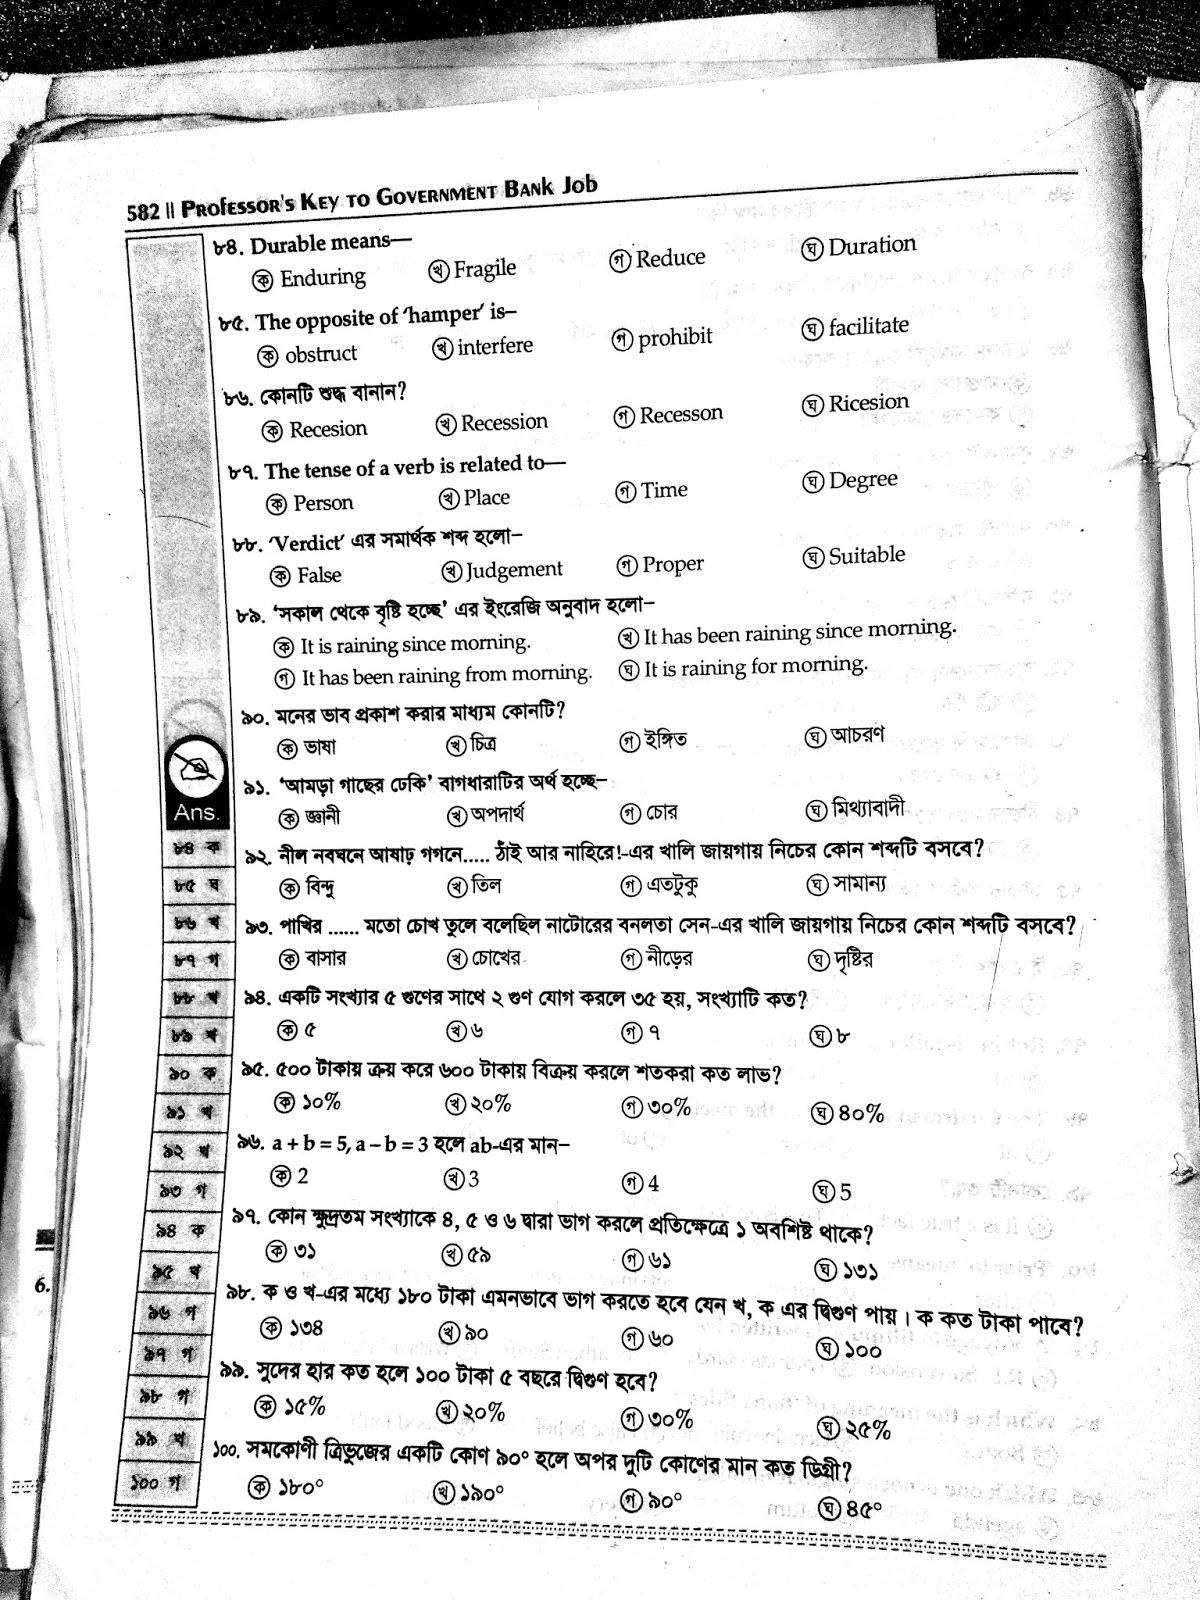 582 || PROFESSOR'S KEY TO GOVERNMENT BANK JOB
৮৪. Durable means—
ক Enduring খ Fragile গ Reduce ঘ Duration
৮৫. The opposite of 'hamper' is–
ক obstruct খ interfere গ prohibit ঘ facilitate
৮৬. কোনটি শুদ্ধ বানান?
ক Recesion খ Recession গ Recesson ঘ Ricesion
৮৭. The tense of a verb is related to—
ক Person খ Place গ Time ঘ Degree
৮৮. 'Verdict' এর সমার্থক শব্দ হলো–
ক False খ Judgement গ Proper ঘ Suitable
৮৯. 'সকাল থেকে বৃষ্টি হচ্ছে' এর ইংরেজি অনুবাদ হলো–
ক It is raining since morning. খ It has been raining since morning.
গ It has been raining from morning. ঘ It is raining for morning.
৯০. মনের ভাব প্রকাশ করার মাধ্যম কোনটি?
ক ভাষা খ চিত্র গ ইঙ্গিত ঘ আচরণ
৯১. 'আমড়া গাছের ঢেকি' বাগধারাটির অর্থ হচ্ছে–
ক জ্ঞানী খ অপদার্থ গ চোর ঘ মিথ্যাবাদী
৯২. নীল নবঘনে আষাঢ় গগনে..... ঠাঁই আর নাহিরে!-এর খালি জায়গায় নিচের কোন শব্দটি বসবে?
ক বিন্দু খ তিল গ এতটুকু ঘ সামান্য
৯৩. পাখির ...... মতো চোখ তুলে বলেছিল নাটোরের বনলতা সেন-এর খালি জায়গায় নিচের কোন শব্দটি বসবে?
ক বাসার খ চোখের গ নীড়ের ঘ দৃষ্টির
৯৪. একটি সংখ্যার ৫ গুণের সাথে ২ গুণ যোগ করলে ৩৫ হয়, সংখ্যাটি কত?
ক ৫ খ ৬ গ ৭ ঘ ৮
৯৫. ৫০০ টাকায় ক্রয় করে ৬০০ টাকায় বিক্রয় করলে শতকরা কত লাভ?
ক ১০% খ ২০% গ ৩০% ঘ ৪০%
৯৬. a + b = 5, a – b = 3 হলে ab-এর মান–
ক 2 খ 3 গ 4 ঘ 5
৯৭. কোন ক্ষুদ্রতম সংখ্যাকে ৪, ৫ ও ৬ দ্বারা ভাগ করলে প্রতিক্ষেত্রে ১ অবশিষ্ট থাকে?
ক ৩১ খ ৫৯ গ ৬১ ঘ ১৩১
৯৮. ক ও খ-এর মধ্যে ১৮০ টাকা এমনভাবে ভাগ করতে হবে যেন খ, ক এর দ্বিগুণ পায়। ক কত টাকা পাবে?
ক ১৩৪ খ ৯০ গ ৬০ ঘ ১০০
৯৯. সুদের হার কত হলে ১০০ টাকা ৫ বছরে দ্বিগুণ হবে?
ক ১৫% খ ২০% গ ৩০% ঘ ২৫%
১০০. সমকোণী ত্রিভুজের একটি কোণ ৯০° হলে অপর দুটি কোণের মান কত ডিগ্রী?
ক ১৮০° খ ১৯০° গ ৯০° ঘ ৪৫°
Ans.
৮৪ ক
৮৫ ঘ
৮৬ খ
৮৭ গ
৮৮ খ
৮৯ খ
৯০ ক
৯১ খ
৯২ খ
৯৩ গ
৯৪ ক
৯৫ খ
৯৬ গ
৯৭ গ
৯৮ গ
৯৯ খ
১০০ গ
6.